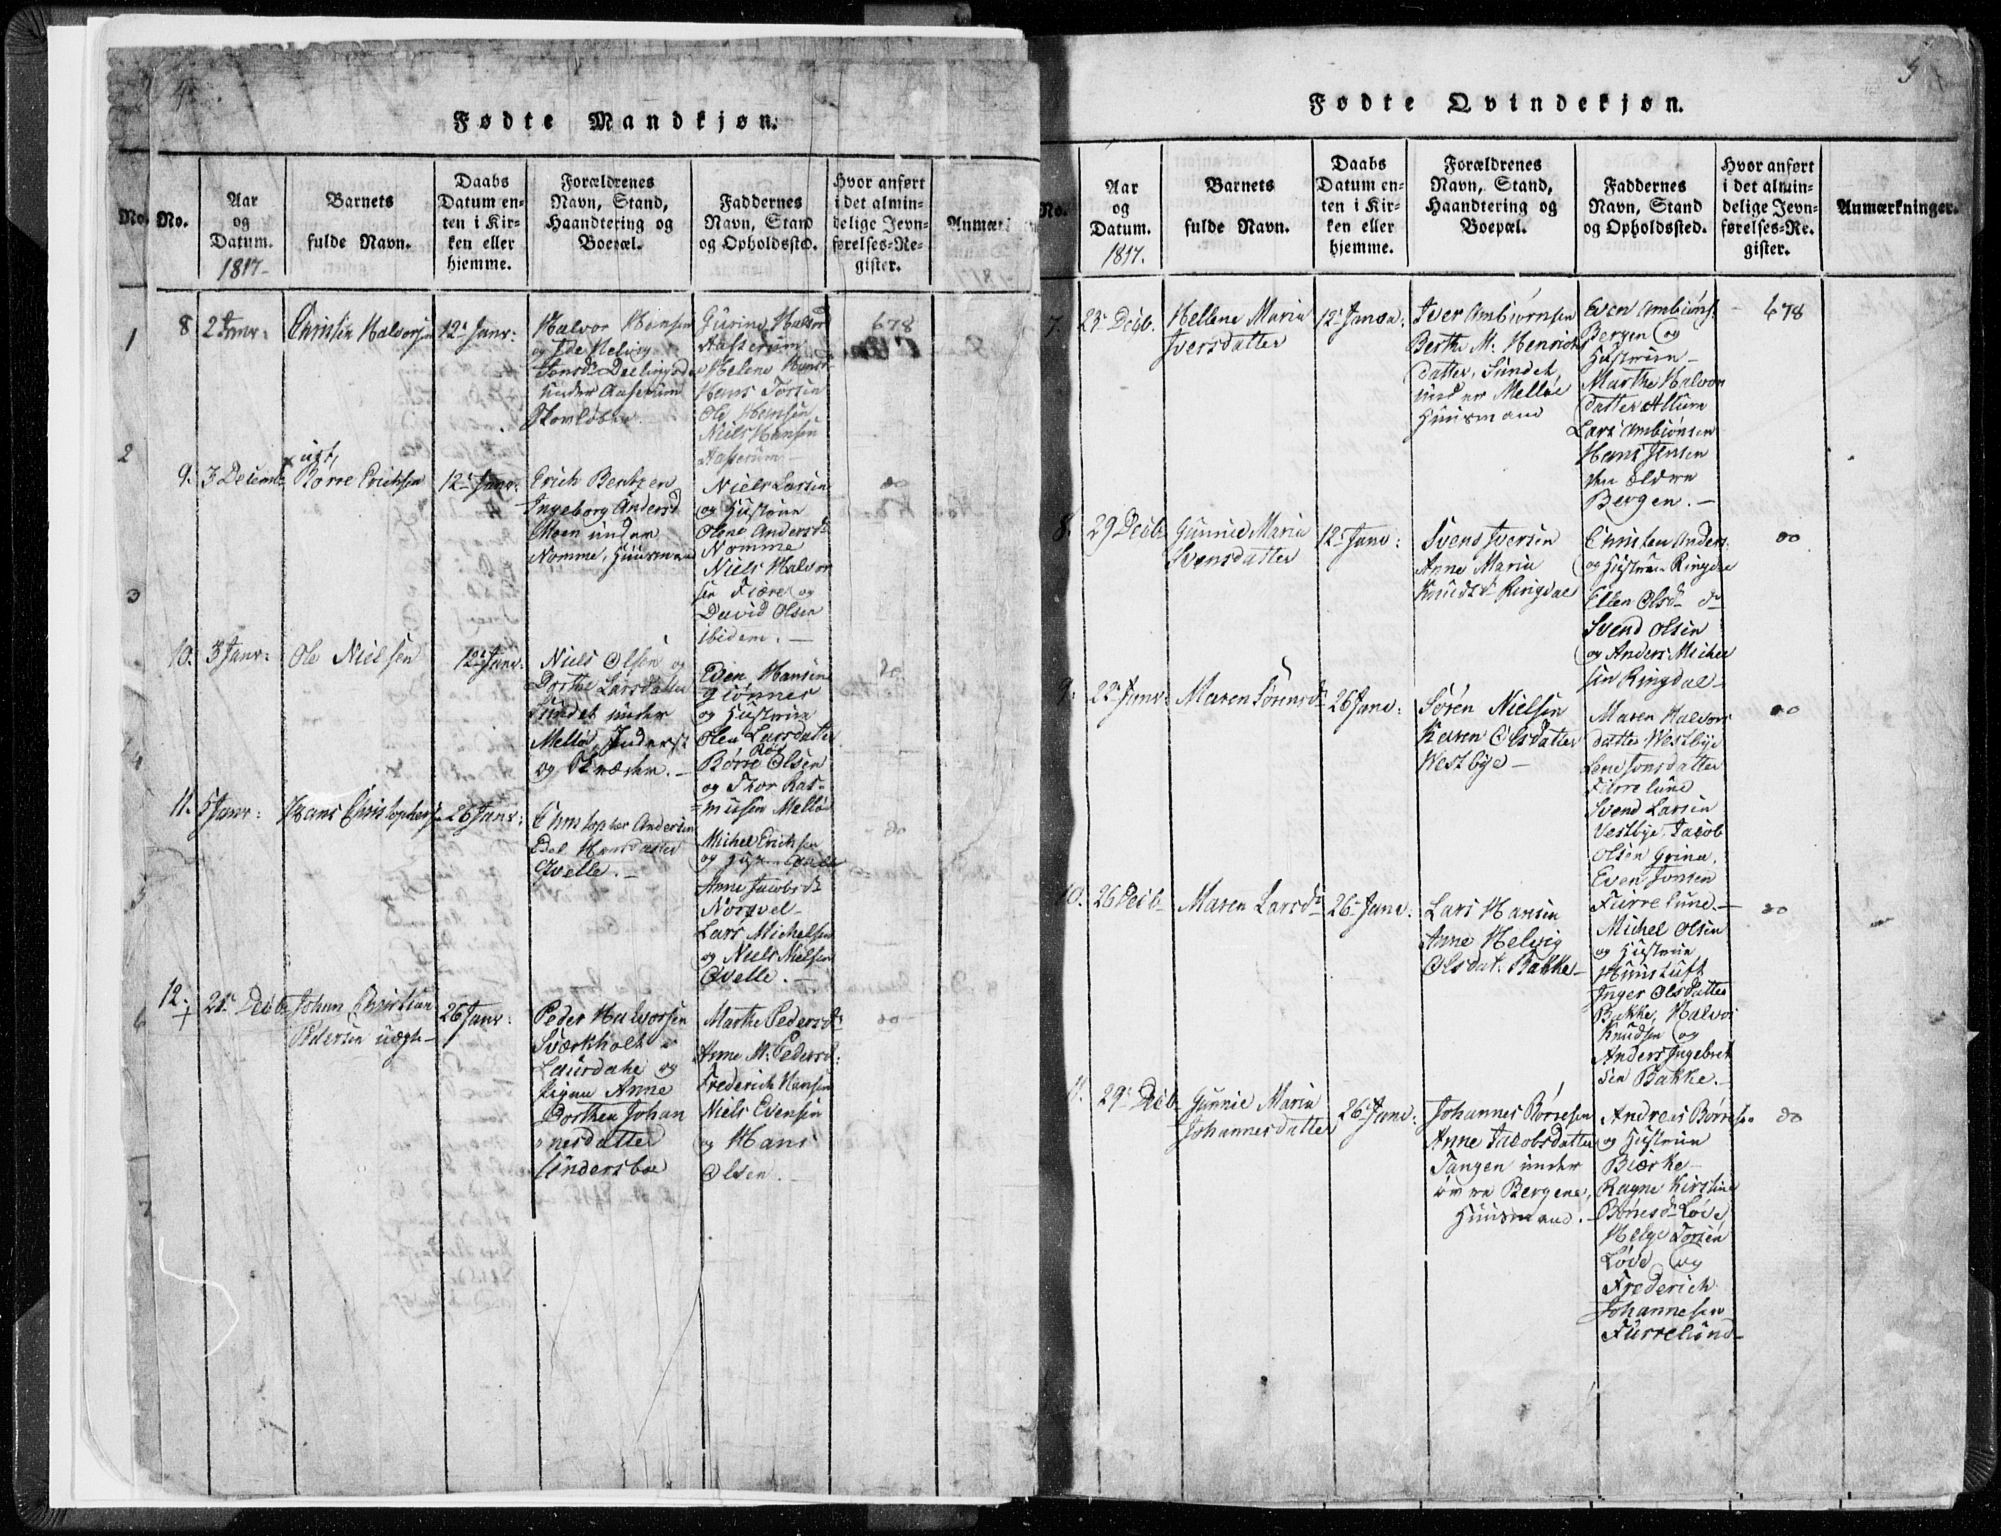 Fødte Mandkjøn.
No.
No.
Aar
og
Datum.
1817
Barnets
fulde Navn.
Daabs
Datum en-
ten i Kir-
ken eller
hjemme.
Forældrenes
Navn, Stand,
Haandtering og
Boepæl.
Faddernes
Navn, Stand
og Opholdssted.
Hvor anført
i det almin-
delige Jevn-
førelses-Re-
gister.
Anmær
1
2
3
4
5
6
7
8
2 Janr:
Christen Halvorsen
12. Janr:
Halvor Hansen
og Ede Helvig
under Aaserum
Gurine Halvord
Aasserum
Helene Hans
Hans
Ole Hansen
Niels Hansen
Aasserum
678
9.
3 Decemb.
uægt.
Børre Erichsen
12. Janr.
Erich Bentzen
Ingeborg Andersd
Moen under
Nomme, Huusmand
Niels Larsen
og Hustrue
Olene Andersd.
Nomme
Niels Halvor
sen Fiære og
David Olsen
ibidem.
do
10.
3 Janr:
Ole Nielsen
12. Janr.
Niels Olsen og
Dorthe Larsdatter
Sundet under
Melløs, Inderst
og Skræder.
Even Hansen
Giønnes
og Hustrue
Olea Larsdatter
Røed
Børre Olsen
og Thor Ras-
musen Melløs
do
11.
5 Janr:
Hans Christophersen
26 Janr:
Christopher Andersen
Edel Hansdatter
Qvelle.
Michel Erichsen
og Hustrue Qvelle
Anne Jacobsd.
Norqvel
Lars Michelsen
og Niels Nielsen
Qvelle.
do
12.
21. Decb.
Johan Christian
Pedersen uægte
26 Janr:
Peder Halvorsen
Sværkholt i
Laurdahl og
Pigen Anne
Dorthea Johan
nesdatter
Undersboe
Marthe Pedersd.
Anne M. Pedersd.
Frederich Hansen
Niels Evensen
og Hans
Olsen.
do
5
Fødte Qvindekjøn.
No.
Aar
og
Datum.
1817.
Barnets
fulde Navn.
Daabs
Datum en-
ten i Kir-
ken eller
hjemme.
Forældrenes
Navn, Stand,
Haandtering og
Boepæl.
Faddernes
Navn, Stand
og Opholdssted.
Hvor anført
i det almin-
delige Jevn-
førelses-Re-
gister.
Anmærkninger.
7.
23. Decb.
Hellene Maria
Iversdatter
12. Janua.
Iver Ambiørnsen
Berthe M. Henrichs
datter, Sundet
under Melløs
Huusmand
Even Ambiøns.
Bergen og
Hustrue
Marthe Halvors
datter Allum
Lars Ambiønsen
Hans Jensen
den ældre
Bergen.
678
8.
29 Decb.
Gunnild Maria
Svensdatter
12. Janr:
Svens Iversen
Anne Maria
Knudsd. Ringdal
Christen Anders.
og Hustrue Ringdal
Ellen Olsd. do
Svend Olsen
og Anders Michel
sen Ringdal
do
9.
22. Janr.
Maren Sørensd.
26 Janr:
Søren Nielsen
Karen Olsdatter
Westbye
Maren Halvors
datter Westbye
Lene Jonsdatter
Furrelund
Svend Larsen
Vestbye, Jacob
Olsen Grina.
Even Jonsen
Furrelund.
do
10.
26 Decb.
Maren Larsd.
26. Janr.
Lars Hansen
Anne Helvig
Olsdat. Bakke
Michel Olsen
og Hustrue
Huustuft
Inger Olsdatter
Bakke, Halvor
Knudsen og
Anders Ingebret
sen Bakke.
do
11.
29. Decb.
Gunnild Maria
Johannesdatter
26. Janr:
Johannes Børresen
Anne Jacobsdatter
Tangen under
øvre Bergene,
Huusmand.
Andreas Børresen
og Hustrue
Biørke
Ragne Kirstine
Børresd. Løve
Helge Torsen
Løve og
Frederich
Johannesen
Furrelund
do